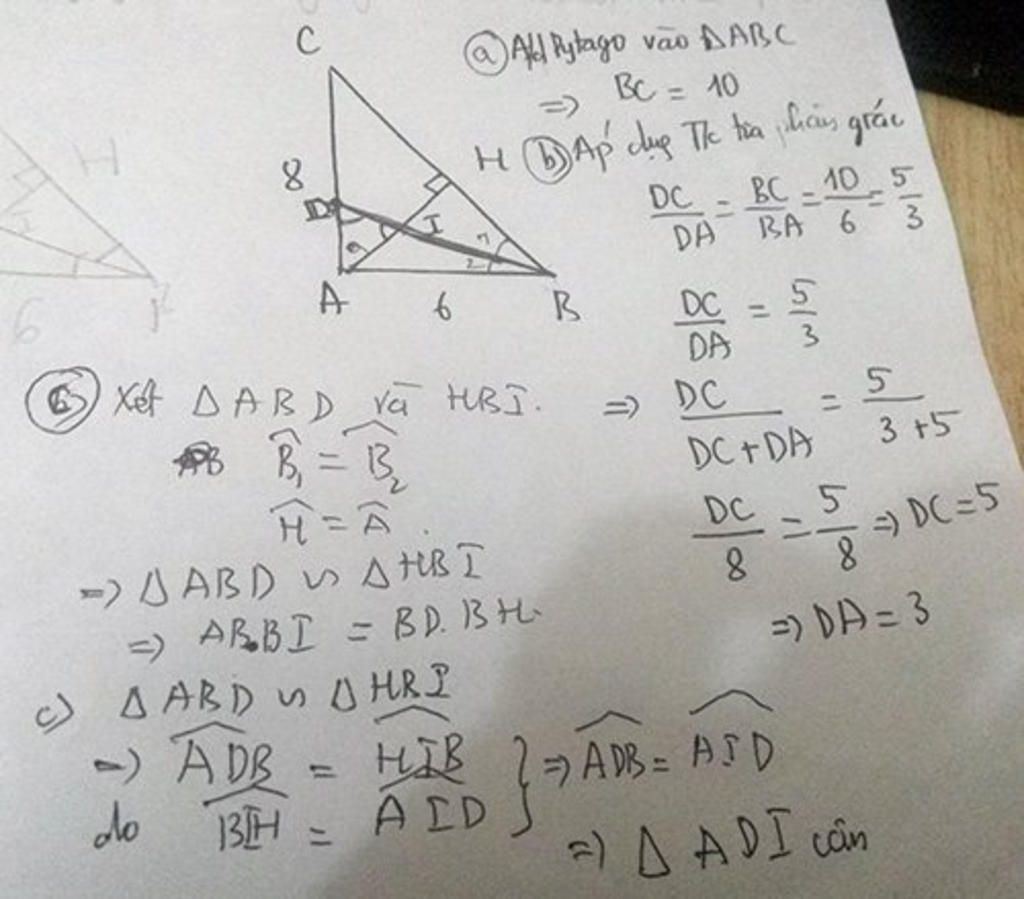 C
8
D
I
A
6
B
H
1
2
ⓐ Ad Pytago vào ΔABC
=> BC = 10
ⓑ Áp dụng T/c tia phân giác
DC/DA = BC/BA = 10/6 = 5/3
DC/DA = 5/3
=> DC/(DC+DA) = 5/(3+5)
DC/8 = 5/8 => DC=5
=> DA = 3
Xét ΔABD và HBI.
B̂₁ = B̂₂
Ĥ = Â.
=> ΔABD ∽ ΔHBI
=> AB.BI = BD.BH.
c) ΔABD ∽ ΔHBI
=> ADB^ = HIB^ } => ADB^ = AID^
do BIH^ = AID^
=> ΔADI cân
H
I
6